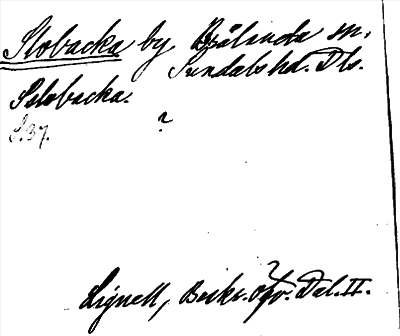 Slobacka by Bälinda sn,
Sundals hd. Dls.
Sslobacka.
S.37.
?
?
Lignell, Beskr. öfv. Dal. II.